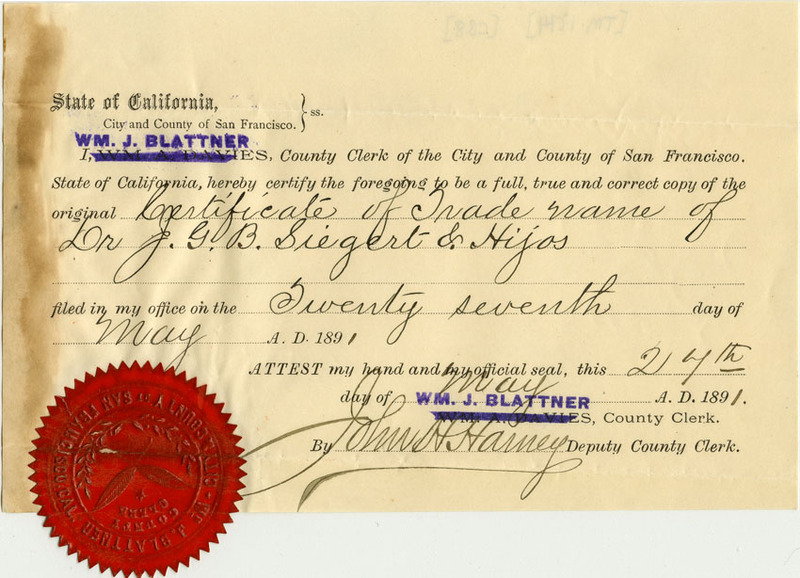 State of California,
City and County of San Francisco. } ss.
WM. J. BLATTNER
I, WM. A. DAVIES, County Clerk of the City and County of San Francisco,
State of California, hereby certify the foregoing to be a full, true and correct copy of the
original Certificate of Trade name of
Dr J. G. B. Siegert & Hijos
filed in my office on the Twenty seventh day of
May A. D. 1891
ATTEST my hand and my official seal, this 27th
day of May A. D. 1891.
WM. J. BLATTNER
WM. A. DAVIES, County Clerk.
By John H. Harney Deputy County Clerk.
CITY & COUNTY OF SAN FRANCISCO, CAL.
WM. J. BLATTNER
COUNTY CLERK